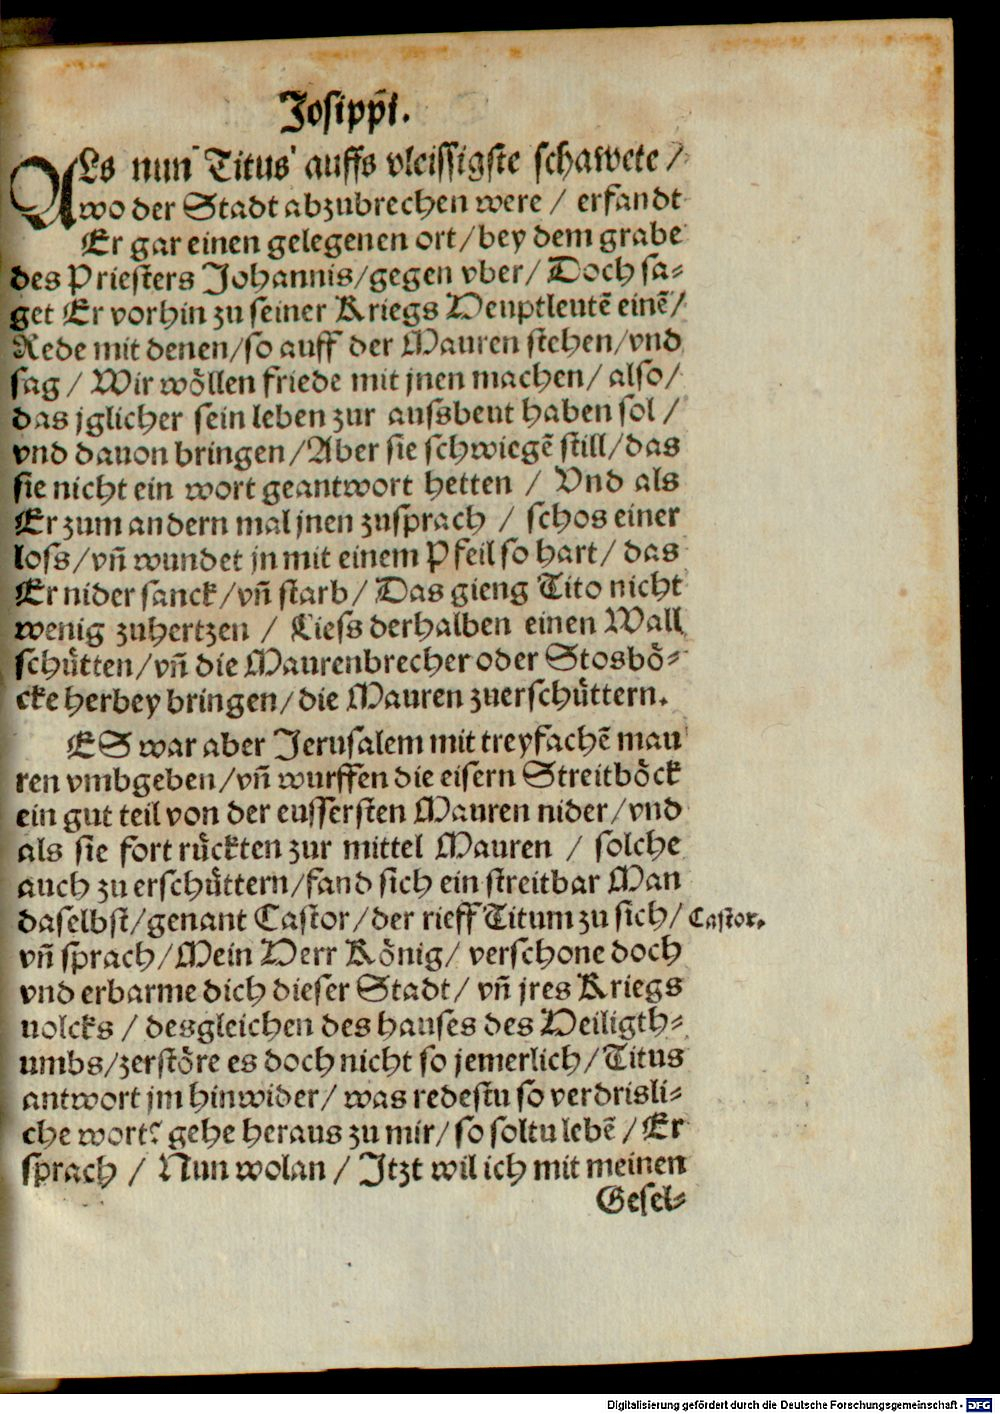 Josippi.
ALs nun Titus auffs vleissigste schawete /
wo der Stadt abzubrechen were / erfandt
Er gar einen gelegenen ort/bey dem grabe
des Priesters Johannis/gegen vber/ Doch sa⸗
get Er vorhin zu seiner Kriegs Heuptleutē einē/
Rede mit denen/so auff der Mauren stehen/vnd
sag / Wir wöllen friede mit jnen machen/ also/
das jglicher sein leben zur aussbeut haben sol /
vnd dauon bringen/Aber sie schwiegē still/das
sie nicht ein wort geantwort hetten / Vnd als
Er zum andern mal jnen zusprach / schos einer
loss/vn̄ wundet jn mit einem Pfeil so hart/ das
Er nider sanck/vn̄ starb/ Das gieng Tito nicht
wenig zuhertzen / Liess derhalben einen Wall
schütten/vn̄ die Maurenbrecher oder Stosbö⸗
cke herbey bringen/die Mauren zuerschüttern.
ES war aber Jerusalem mit treyfachē mau
ren vmbgeben/vn̄ wurffen die eisern Streitböck
ein gut teil von der eussersten Mauren nider/vnd
als sie fort rückten zur mittel Mauren / solche
auch zu erschüttern/fand sich ein streitbar Man
daselbst/genant Castor/der rieff Titum zu sich/
Castor.
vn̄ sprach/Mein Herr König/ verschone doch
vnd erbarme dich dieser Stadt/ vn̄ jres Kriegs
uolcks / desgleichen des hauses des Heiligth⸗
umbs/zerstöre es doch nicht so jemerlich/Titus
antwort jm hinwider/ was redestu so verdrisli⸗
che wort? gehe heraus zu mir/ so soltu lebē /Er
sprach / Nun wolan / Jtzt wil ich mit meinen
Gesel⸗
Digitalisierung gefördert durch die Deutsche Forschungsgemeinschaft - DFG